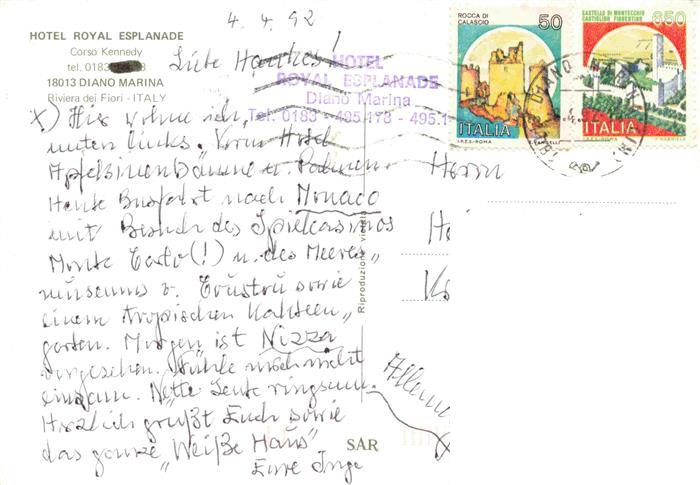 4.4.92
HOTEL ROYAL ESPLANADE
Corso Kennedy
tel. 0183
18013 DIANO MARINA
Riviera dei Fiori - ITALY
HOTEL
ROYAL ESPLANADE
Diano Marina
Tel. 0183 - 495.118 - 495.1
ROCCA DI
CALASCIO
50
ITALIA
I.P.Z.S.-ROMA
CASTELLO DI MONTECCHIO
CASTIGLION FIORENTINO
650
ITALIA
I.P.Z.S.-ROMA
Liebe !
x) Hier wohne ich,
unten links. Vorm Hotel
Apfelsinenbäume u. Palmen.
Heute Busfahrt nach Monaco
mit Besuch des Spielcasinos
Monte Carlo (!) u. des Meeres-
museums v. Cousteau sowie
einem tropischen Kakteen-
garten. Morgen ist Nizza
vorgesehen. Fühle mich nicht
einsam. Nette Leute ringsum.
Herzlich grüßt Euch sowie
das ganze „Weiße Haus"
Eure Inge
Riproduzione vietata
SAR
Herrn
Ha
Ko
Allema